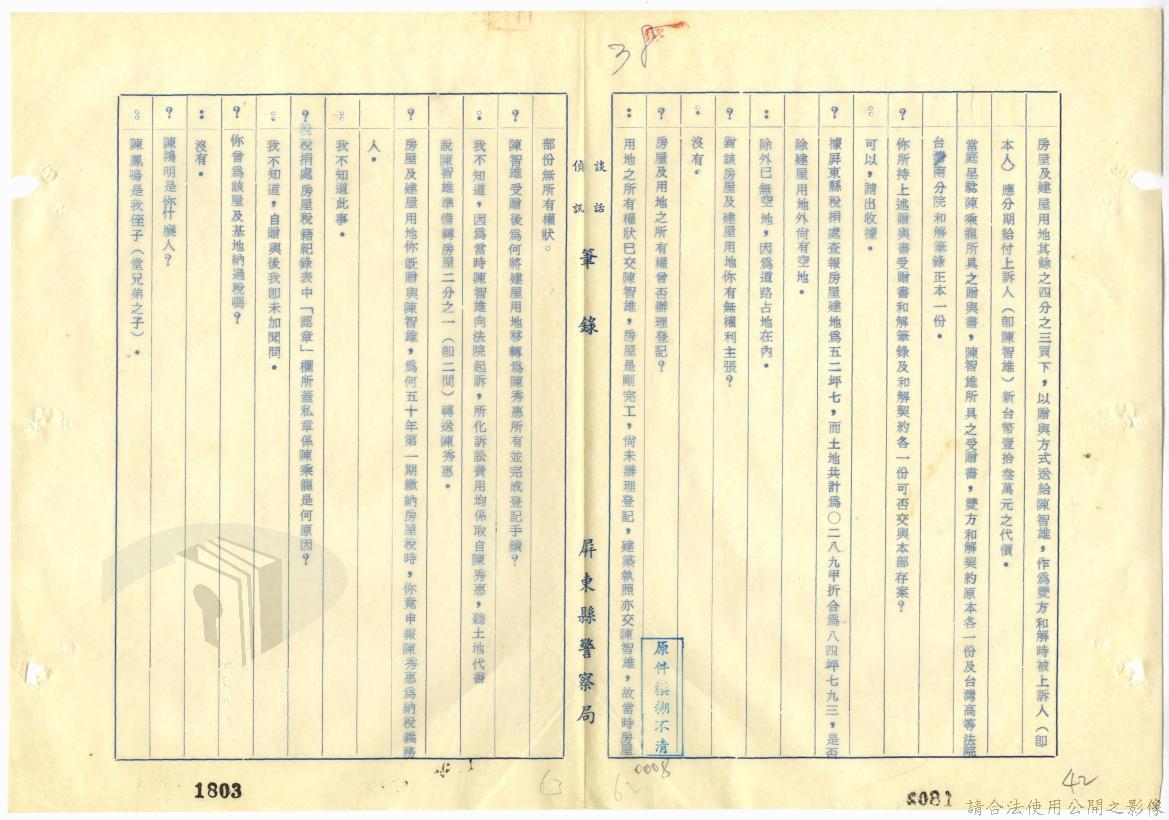 38
房屋及建屋用地其餘之四分之三頁下，以贈與方式送給陳智雄，作為雙方和解時被上訴人（卽
本人）應分期給付上訴人（卽陳智雄）新台幣壹拾叁萬元之代價。
當庭呈驗陳乘龍所具之贈與書，陳智雄所具之受贈書，雙方和解契約原本各一份及台灣高等法院
台灣南分院和解筆錄正本一份。
？ 你所持上述贈與書受贈書和解筆錄及和解契約各一份可否交與本部存案？
： 可以，請出收據。
？ 據屏東縣稅捐處查報房屋建地為五二坪七，而土地共計為〇二八九甲折合為八四坪七九三，是否
除建屋用地外尙有空地。
： 除外已無空地，因為道路占地在內。
？ 對該房屋及建屋用地你有無權利主張？
： 沒有。
？ 房屋及用地之所有權曾否辦理登記？
： 用地之所有權狀已交陳智雄，房屋是剛完工，尙未辦理登記，建築執照亦交陳智雄，故當時房屋
原件模糊不清
談話
偵訊
筆錄
屏東縣警察局
部份無所有權狀。
？ 陳智雄受贈後為何將建屋用地移轉為陳秀惠所有並完成登記手續？
： 我不知道，因為當時陳智雄向法院起訴，所化訴訟費用均係取自陳秀惠，聽土地代書
說陳智雄準備轉房屋二分之一（卽二間）轉送陳秀惠。
？ 房屋及建屋用地你旣贈與陳智雄，為何五十年第一期繳納房屋稅時，你竟申報陳秀惠為納稅義務
人。
： 我不知道此事。
？ 稅捐處房屋稅籍紀錄表中「認章」欄所蓋私章係陳乘龍是何原因？
： 我不知道，自贈與後我卽未加聞問。
？ 你曾為該屋及基地納過稅嗎？
： 沒有。
？ 陳鴻明是你什麼人？
： 陳鳳鳴是我侄子（堂兄弟之子）。
1803
63
62
0008
1802
42
請合法使用公開之影像